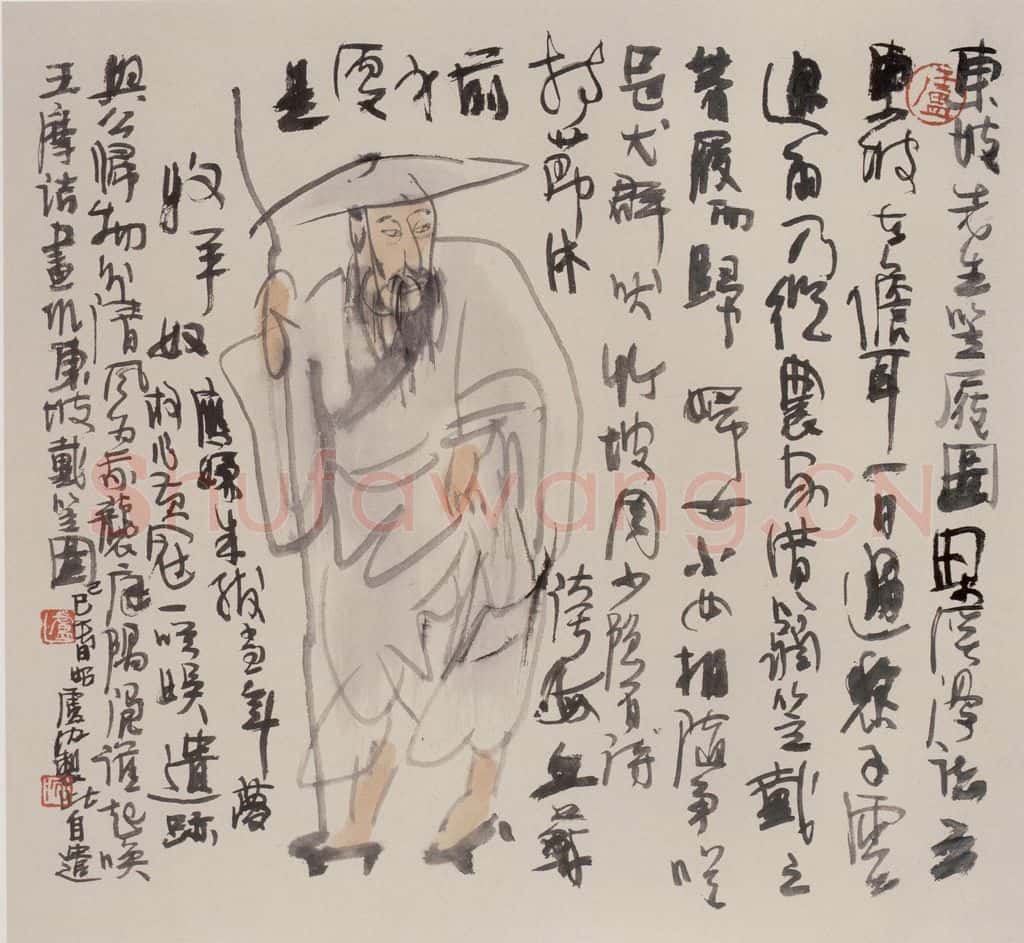 東坡先生笠屐圖 梁溪漫志云
東坡在儋耳一日過黎子雲
遇雨乃從農家借蒻笠戴之
著履而歸 婦女小兒相隨爭笑
邑犬群吠竹坡周少隱有詩
持節休誇海上蘇
前身便是
牧羊奴
應嫌朱紱當年夢
故作黃冠一笑娛遺跡
與公歸物外清風為我襲庭隅憑誰起喚
王摩詰畫作東坡戴笠圖
己巳
自遣
Shufawang.CN